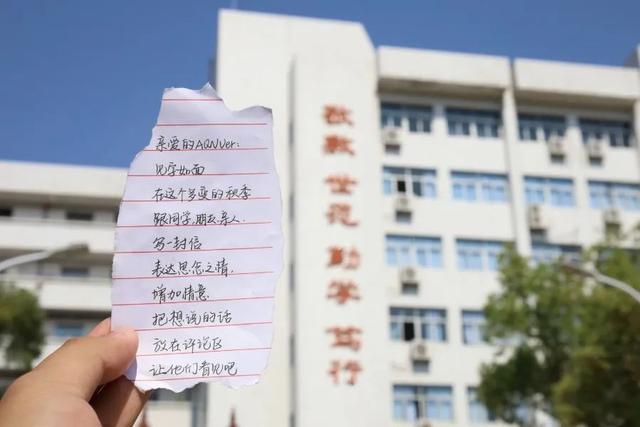 亲爱的AQNUer:
见字如面
在这个多变的秋季
跟同学,朋友,亲人.
写一封信
表达思念之情.
增加情意.
把想说的话
放在评论区
让他们看见吧
敬敷世范 勤学笃行